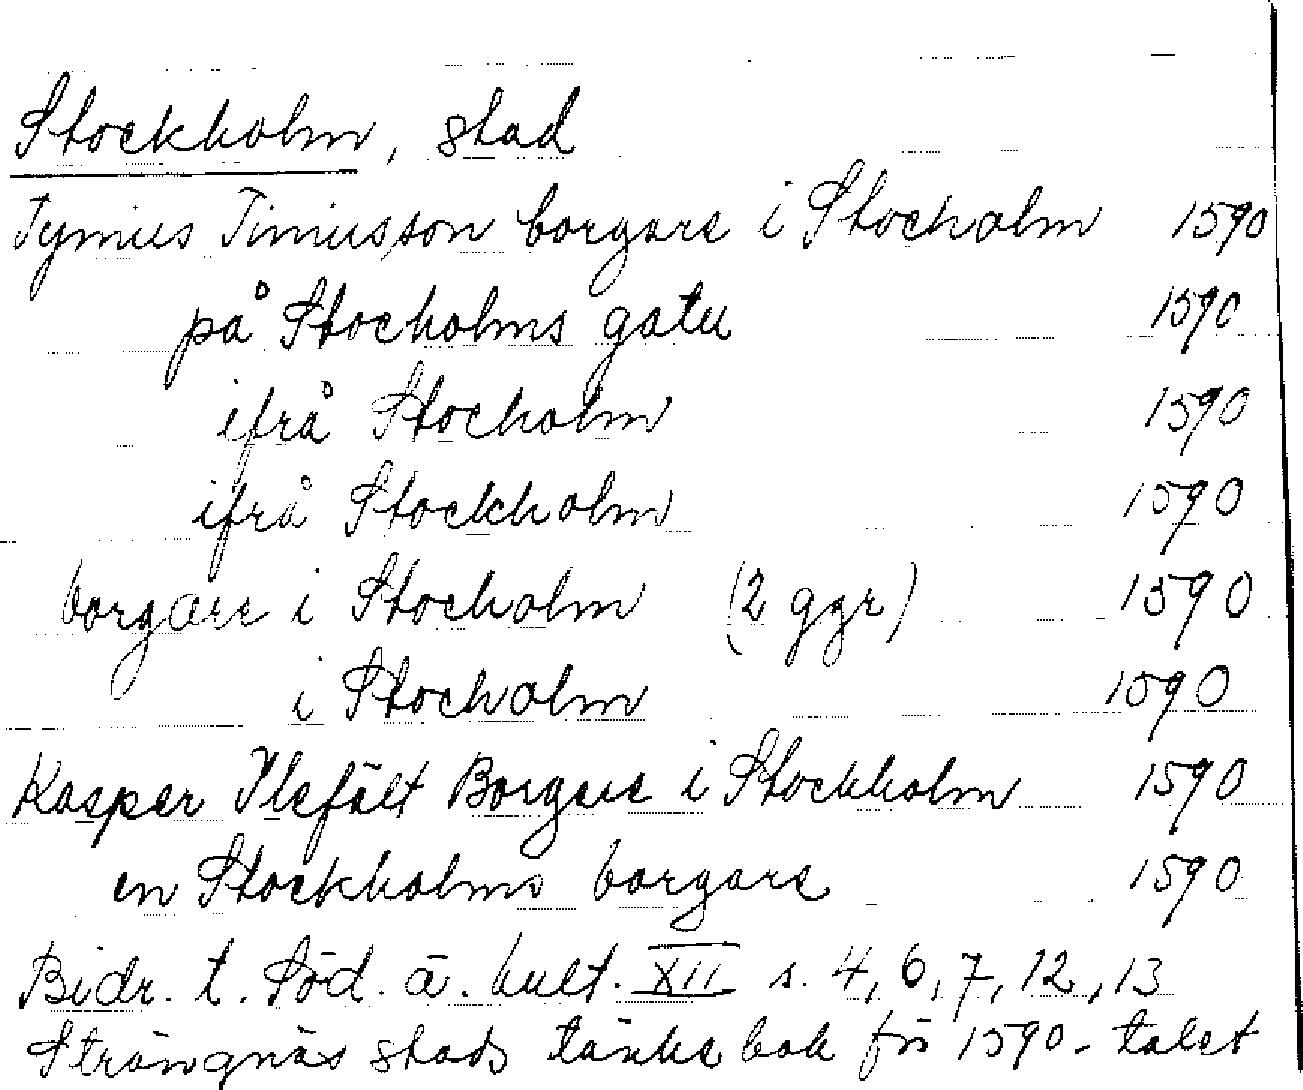 Stockholm, stad
Tymius Timiusson borgare i Stocholm 1590
på Stocholms gatu 1590
ifrå Stocholm 1590
ifrå Stockholm 1590
borgare i Stocholm (2 ggr) 1590
i Stocholm 1590
Kasper Ulefält Borgare i Stockholm 1590
en Stockholms borgare 1590
Bidr. t. Söd. ä. kult. XII s. 4, 6, 7, 12, 13
Strängnäs stads tänkebok för 1590-talet